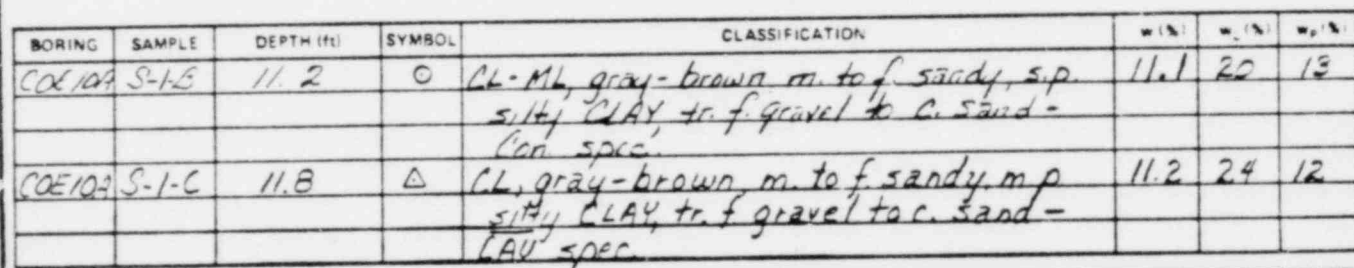 BORING SAMPLE DEPTH (ft) SYMBOL CLASSIFICATION w (%) w L (%) w P (%)
COE10A S-1-B 11.2 ⊙ CL-ML, gray-brown m. to f. sandy, s.p. 11.1 20 13
silty CLAY, tr. f. gravel to c. sand -
Con. spec.
COE10A S-1-C 11.8 △ CL, gray-brown, m. to f. sandy, m p 11.2 24 12
silty CLAY, tr. f gravel to c. sand -
spec.